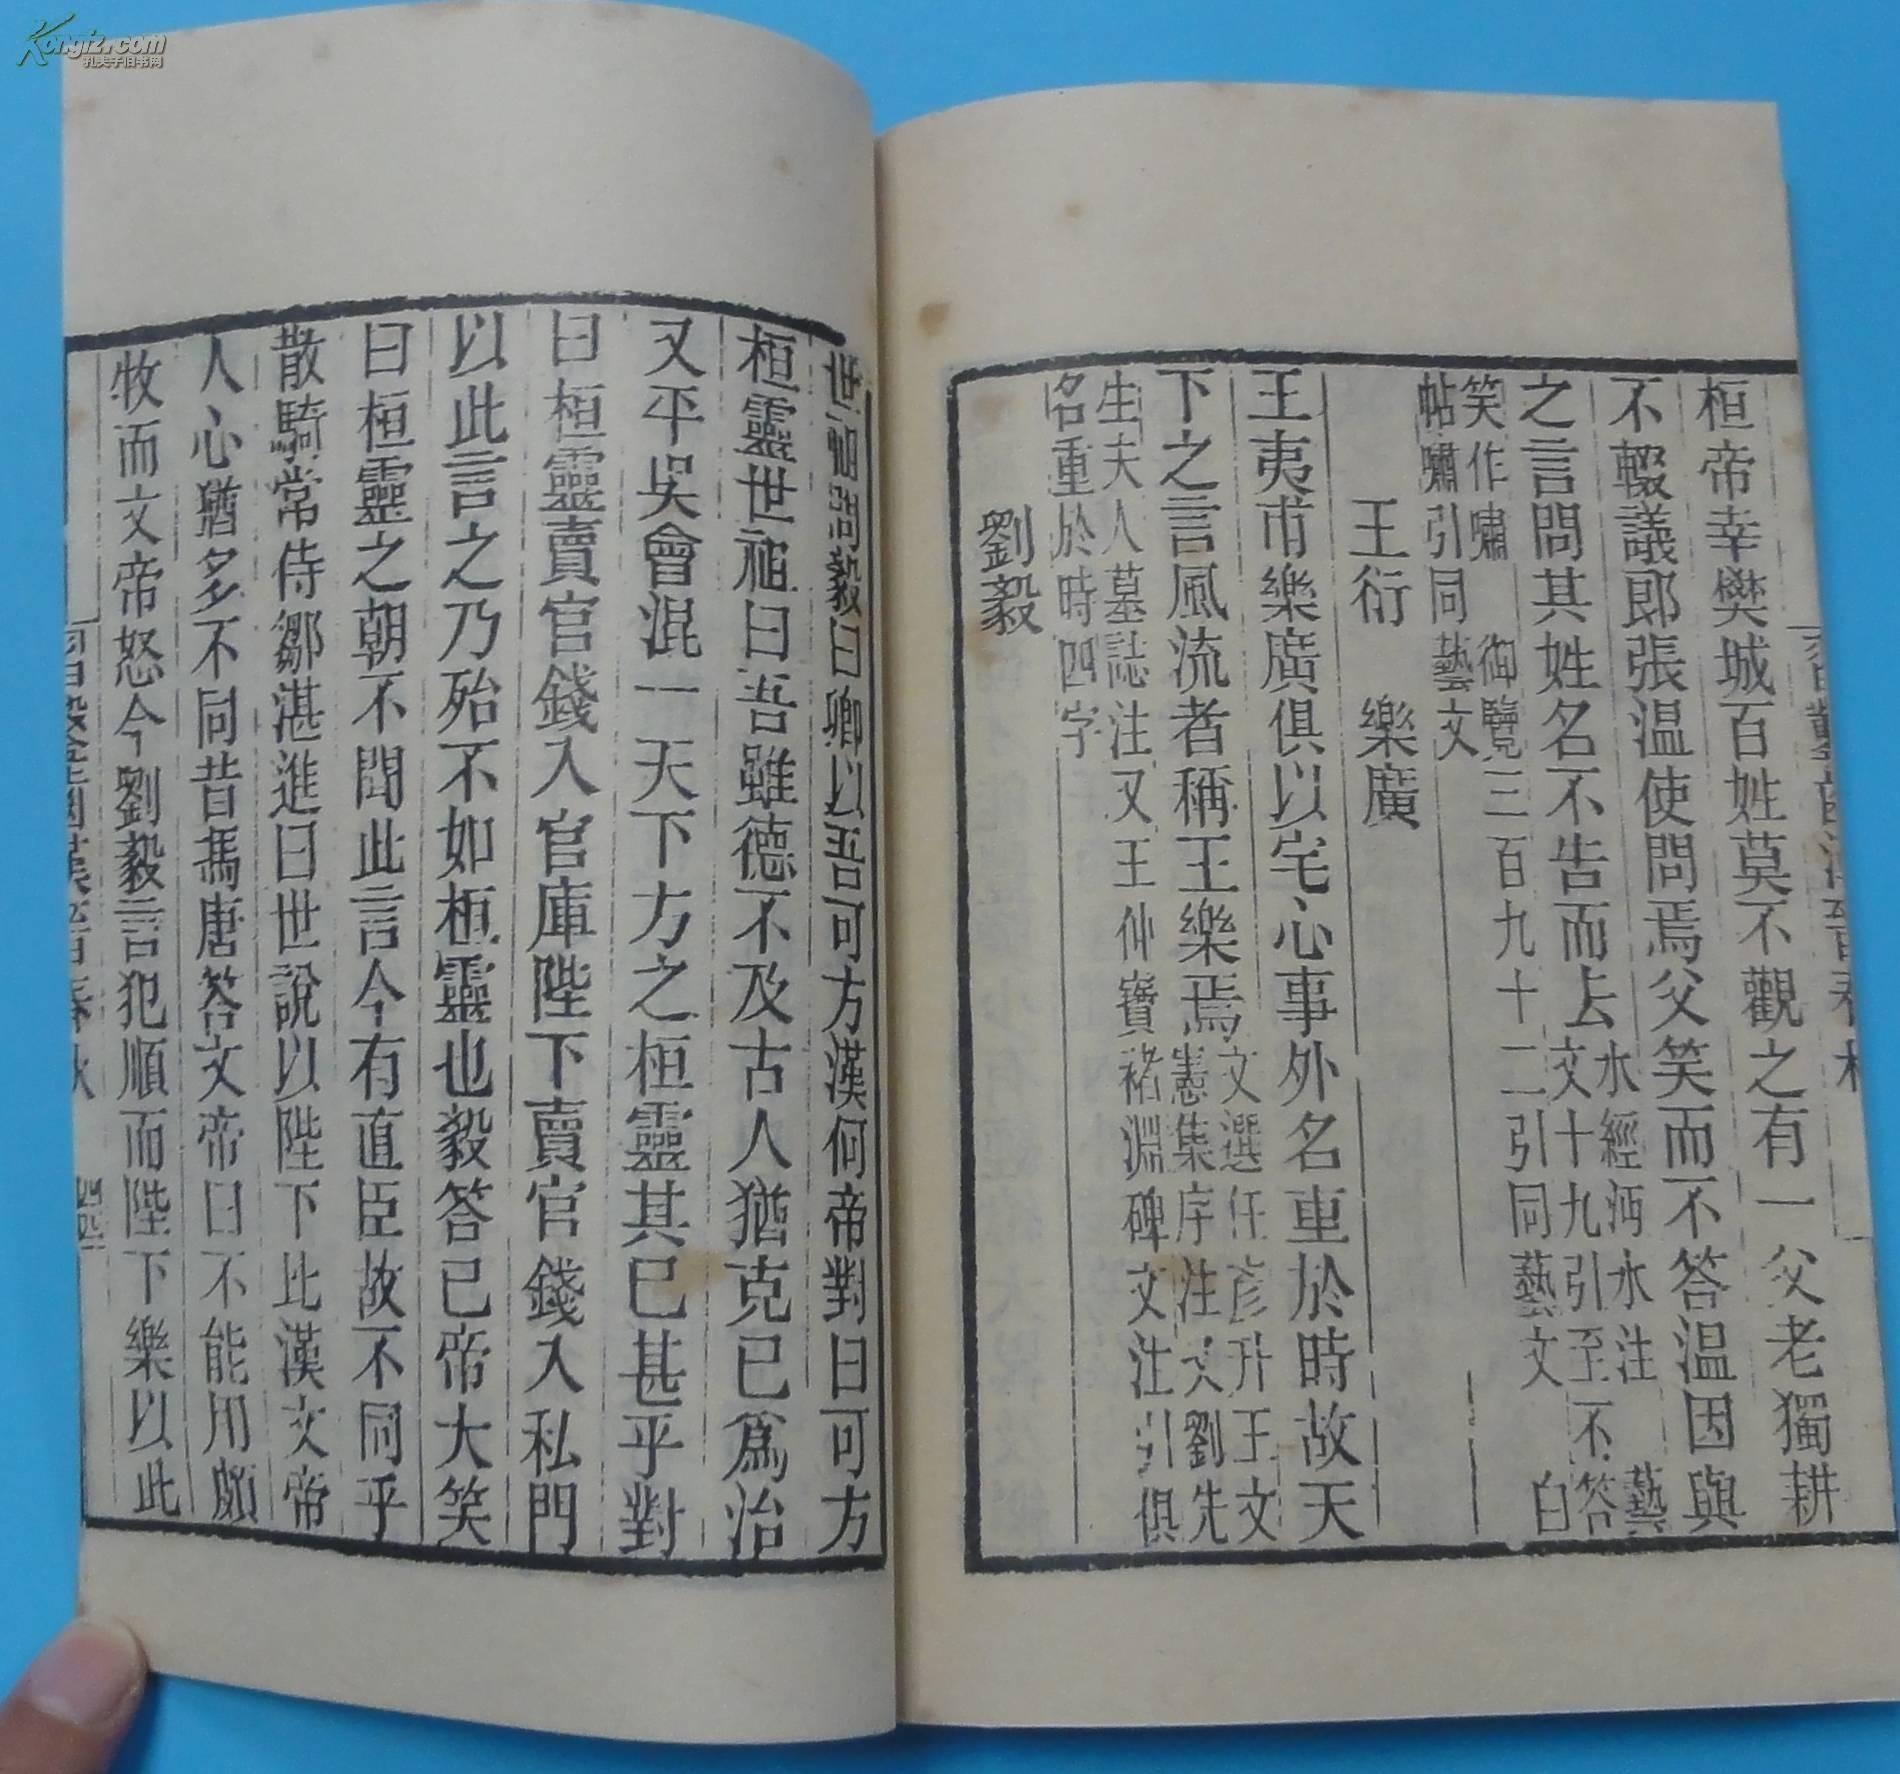 桓帝幸樊城百姓莫不觀之有一父老獨耕
不輟議郎張温使問焉父笑而不答温因與
之言問其姓名不告而去
水經沔水注 藝
文十九引至不答
笑作嘯 御覽三百九十二引同藝文 白
帖嘯引同藝文
王衍 樂廣
王夷甫樂廣俱以宅心事外名重於時故天
下之言風流者稱王樂焉
文選任彦升王文
憲集序注又劉先
生夫人墓誌注又王仲寶褚淵碑文注引俱
名重於時四字
劉毅
世祖問毅曰卿以吾可方漢何帝對曰可方
桓靈世祖曰吾雖德不及古人猶克已爲治
又平吳會混一天下方之桓靈其已甚乎對
曰桓靈賣官錢入官庫陛下賣官錢入私門
以此言之乃殆不如桓靈也毅答已帝大笑
曰桓靈之朝不聞此言今有直臣故不同乎
散騎常侍鄒湛進曰世說以陛下比漢文帝
人心猶多不同昔馮唐答文帝曰不能用頗
牧而文帝怒今劉毅言犯順而陛下樂以此
Kongfz.com
孔夫子旧书网